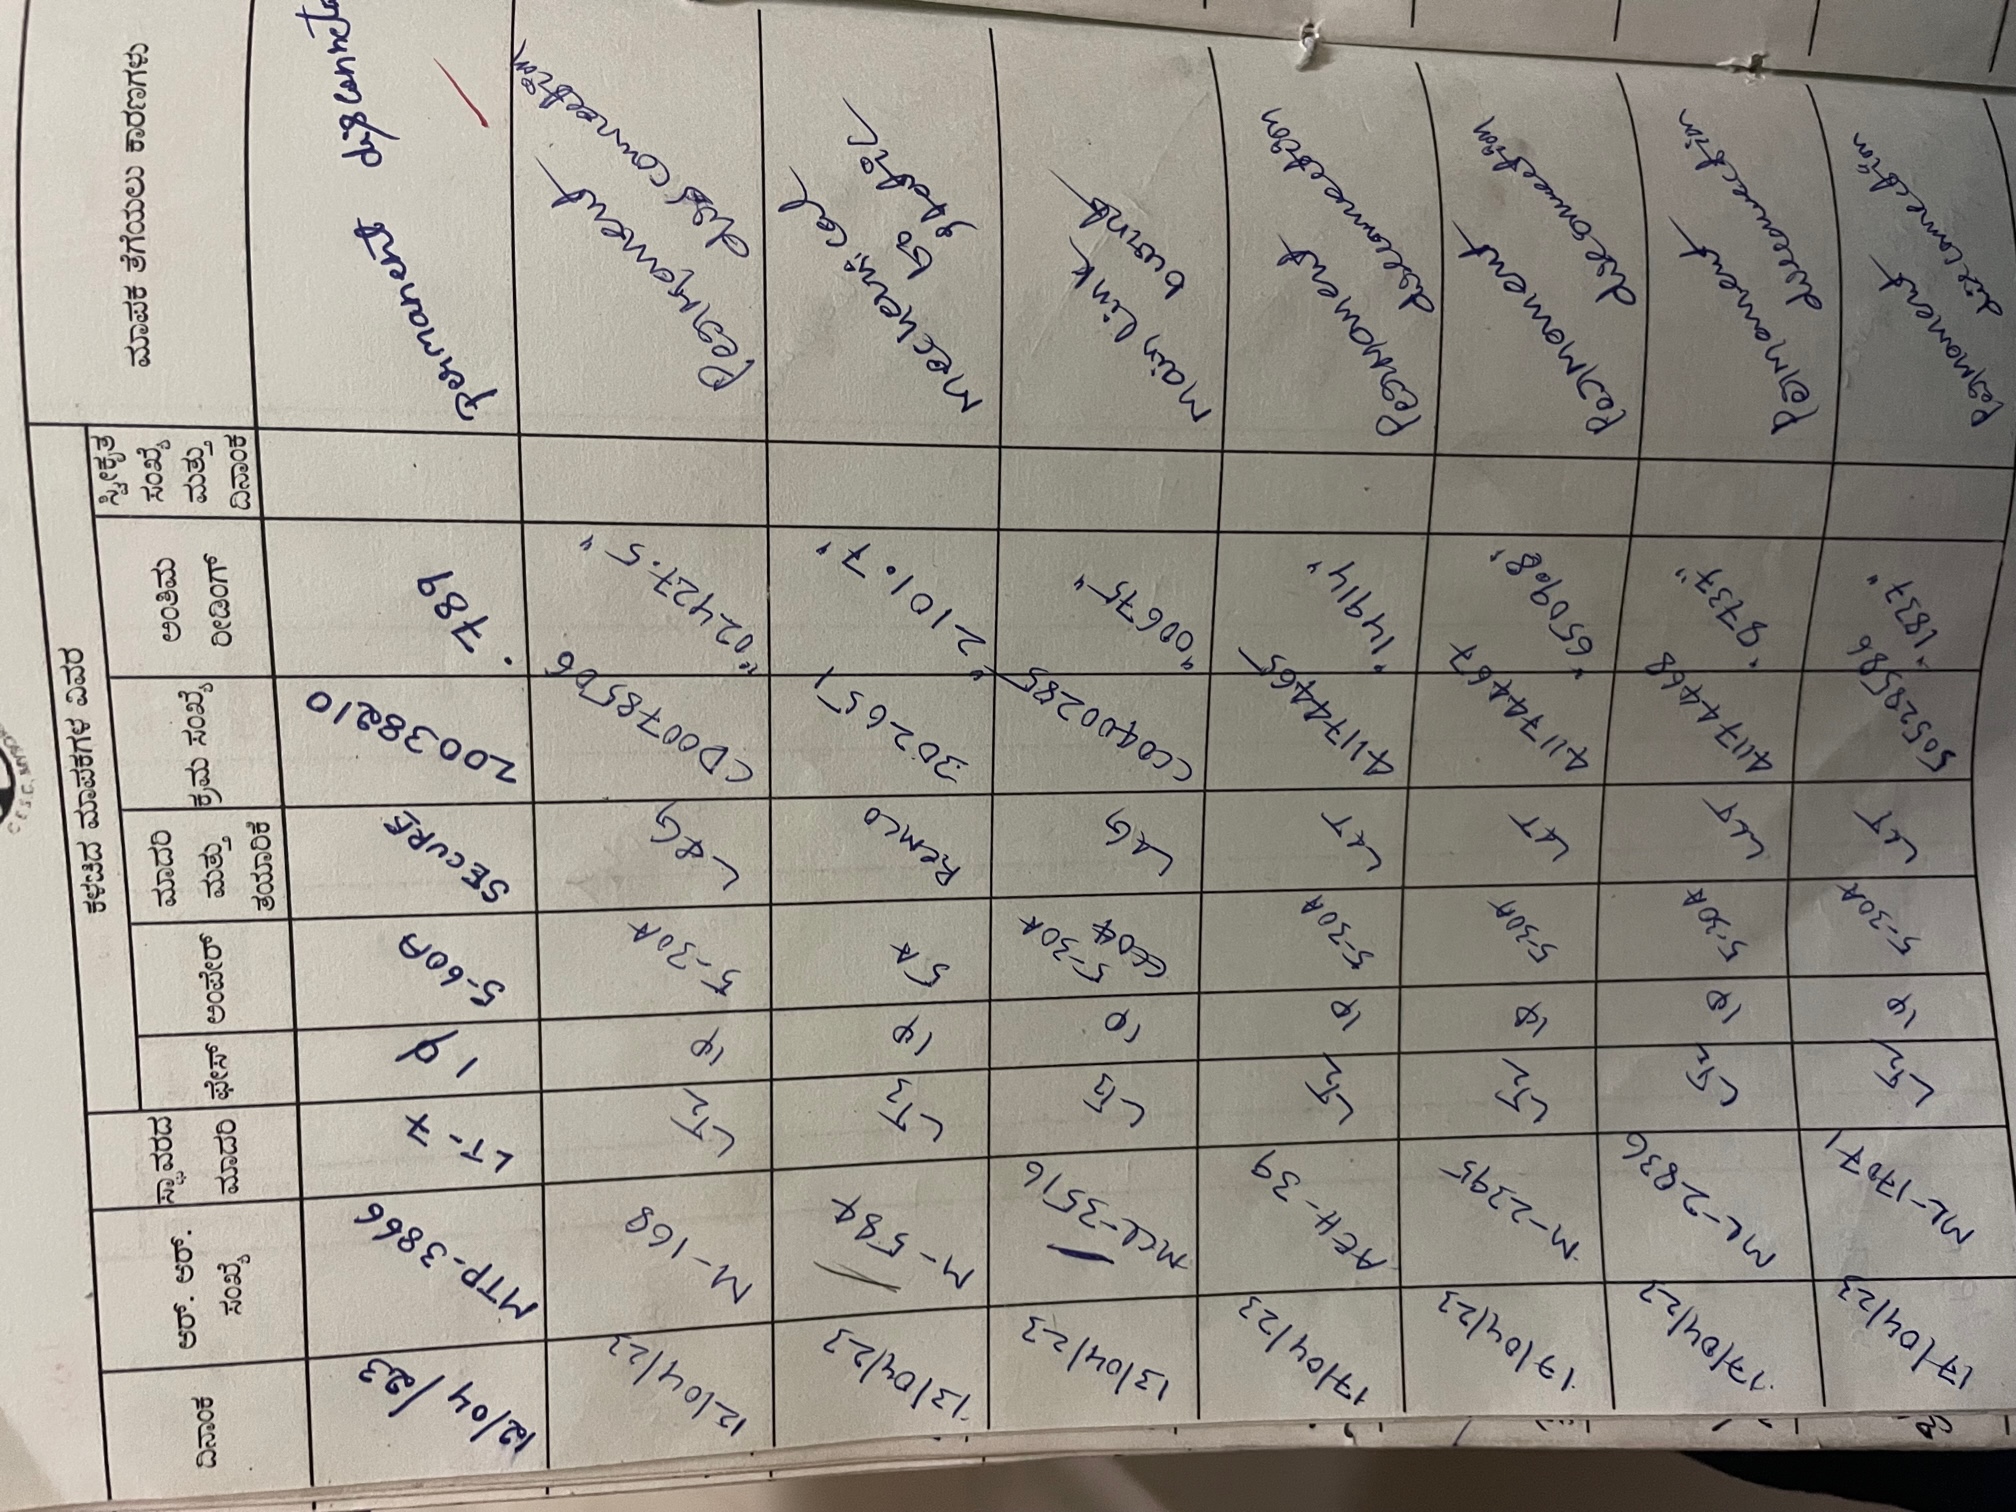 ಕಳಚಿದ ಮಾಪಕಗಳ ವಿವರ
ದಿನಾಂಕ
ಆರ್. ಆರ್. ಸಂಖ್ಯೆ
ಸ್ಥಾವರದ ಮಾದರಿ
ಫೇಸ್
ಅಂಪೇರ್
ಮಾದರಿ ಮತ್ತು ತಯಾರಿಕೆ
ಕ್ರಮ ಸಂಖ್ಯೆ
ಅಂತಿಮ ರೀಡಿಂಗ್
ಸ್ವೀಕೃತ ಸಂಖ್ಯೆ ಮತ್ತು ದಿನಾಂಕ
ಮಾಪಕ ತೆಗೆಯಲು ಕಾರಣಗಳು
12/04/23 MTP-3866 LT-7 1φ 5-60A SECURE 20038210 789 Permanent
12/04/23 M-168 LT2 1φ 5-30A L&G CD0078506 "02427.5" Permanent disconnection
13/04/23 M-584 LT3 1φ 5A REMCO 302651 "2101.7" Mechenical to static
13/04/23 MCL-3516 LT3 1φ 5-30A L&G CC0400285 "00675" Main link burnt
17/04/23 AEH-39 LT2 1φ 5-30A L&T 411744465 "14914" Permanent disconnection
17/04/23 M-2395 LT2 1φ 5-30A L&T 411744467 "6509.8" Permanent disconnection
17/04/23 ML-2836 LT2 1φ 5-30A L&T 411744468 "9737" Permanent disconnection
17/04/23 ML-17071 LT2 1φ 5-30A L&T 50528586 "1837" Permanent disconnection